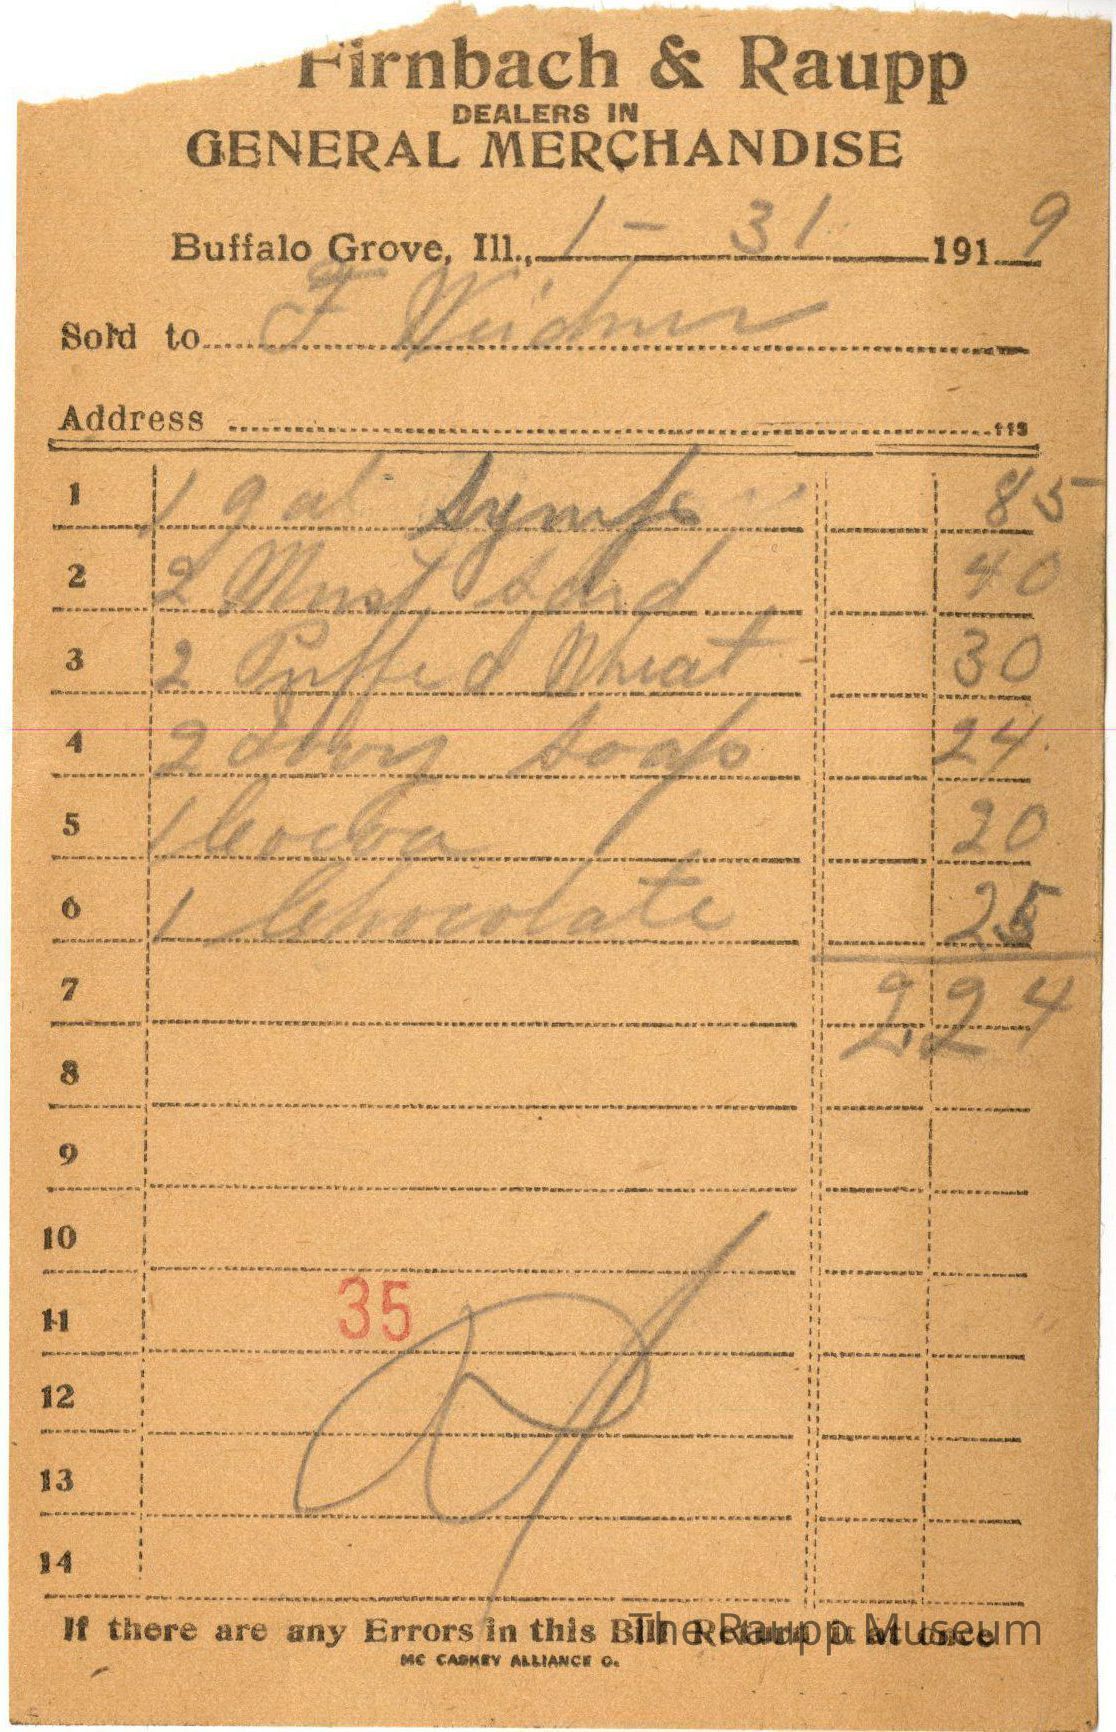 Firnbach & Raupp
DEALERS IN
GENERAL MERCHANDISE
Buffalo Grove, Ill., 1 - 31 1919
Sold to F Weidner
Address 113
1 1 gal Syrup 85
2 2 Must Sard 40
3 2 Puffed Wheat 30
4 2 Ivory Soap 24
5 1 Cocoa 20
6 1 Chocolate 25
7 2.24
8
9
10
11 35
12
13
14
If there are any Errors in this Bill Return it at once
The Raupp Museum
MC CASKEY ALLIANCE O.